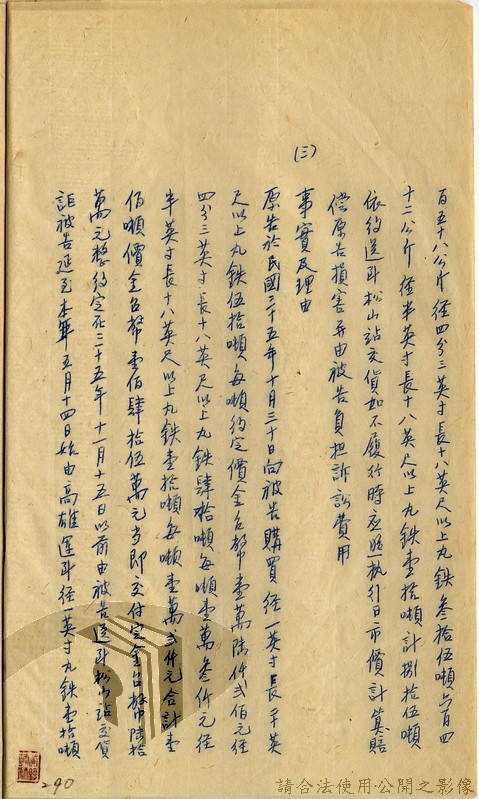 百五十八公斤径四分三英寸長十八英尺以上丸鉄叁拾伍噸六百四
十二公斤径半英寸長十八英尺以上丸鉄壹拾噸計捌拾伍噸
依約送到松山站交貨如不履行時应照执行日市價計算賠
償原告損害并由被告負担訴訟費用
(三)
事實及理由
原告於民國三十五年十月三十日向被告購買径一英寸長二十英
尺以上丸鉄伍拾噸每噸約定價金台幣壹萬陸仟弍佰元径
四分三英寸長十八英尺以上丸鉄肆拾噸每噸壹萬叁仟元径
半英寸長十八英尺以上丸鉄壹拾噸每噸壹萬弍仟元合計壹
佰噸價金台幣壹佰肆拾伍萬元当即交付定金台幣陸拾
萬元整約定在三十五年十一月十五日以前由被告送到松山站交貨
詎被告延至本年五月十四日始由高雄運到径一英寸丸鉄壹拾噸
290
請合法使用·公開之影像